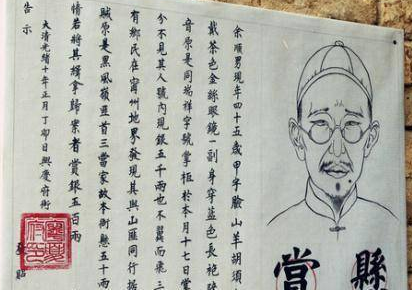 縣
當
余順男現年四十五歲甲字臉山羊胡須
戴茶色金絲眼鏡一副身穿藍色長袍
音原是同瑞祥字號掌柜於本月十七日堂
分不見其人號內現銀五千兩也不翼而飛三
有鄉民在甯州地界發現其與山匪同行
賊原是黑風嶺匪首三當家故本衙懸五十兩
情若將其緝拿歸案者賞銀五百兩
大清光緒十年正月丁卯日興慶府衙
告示